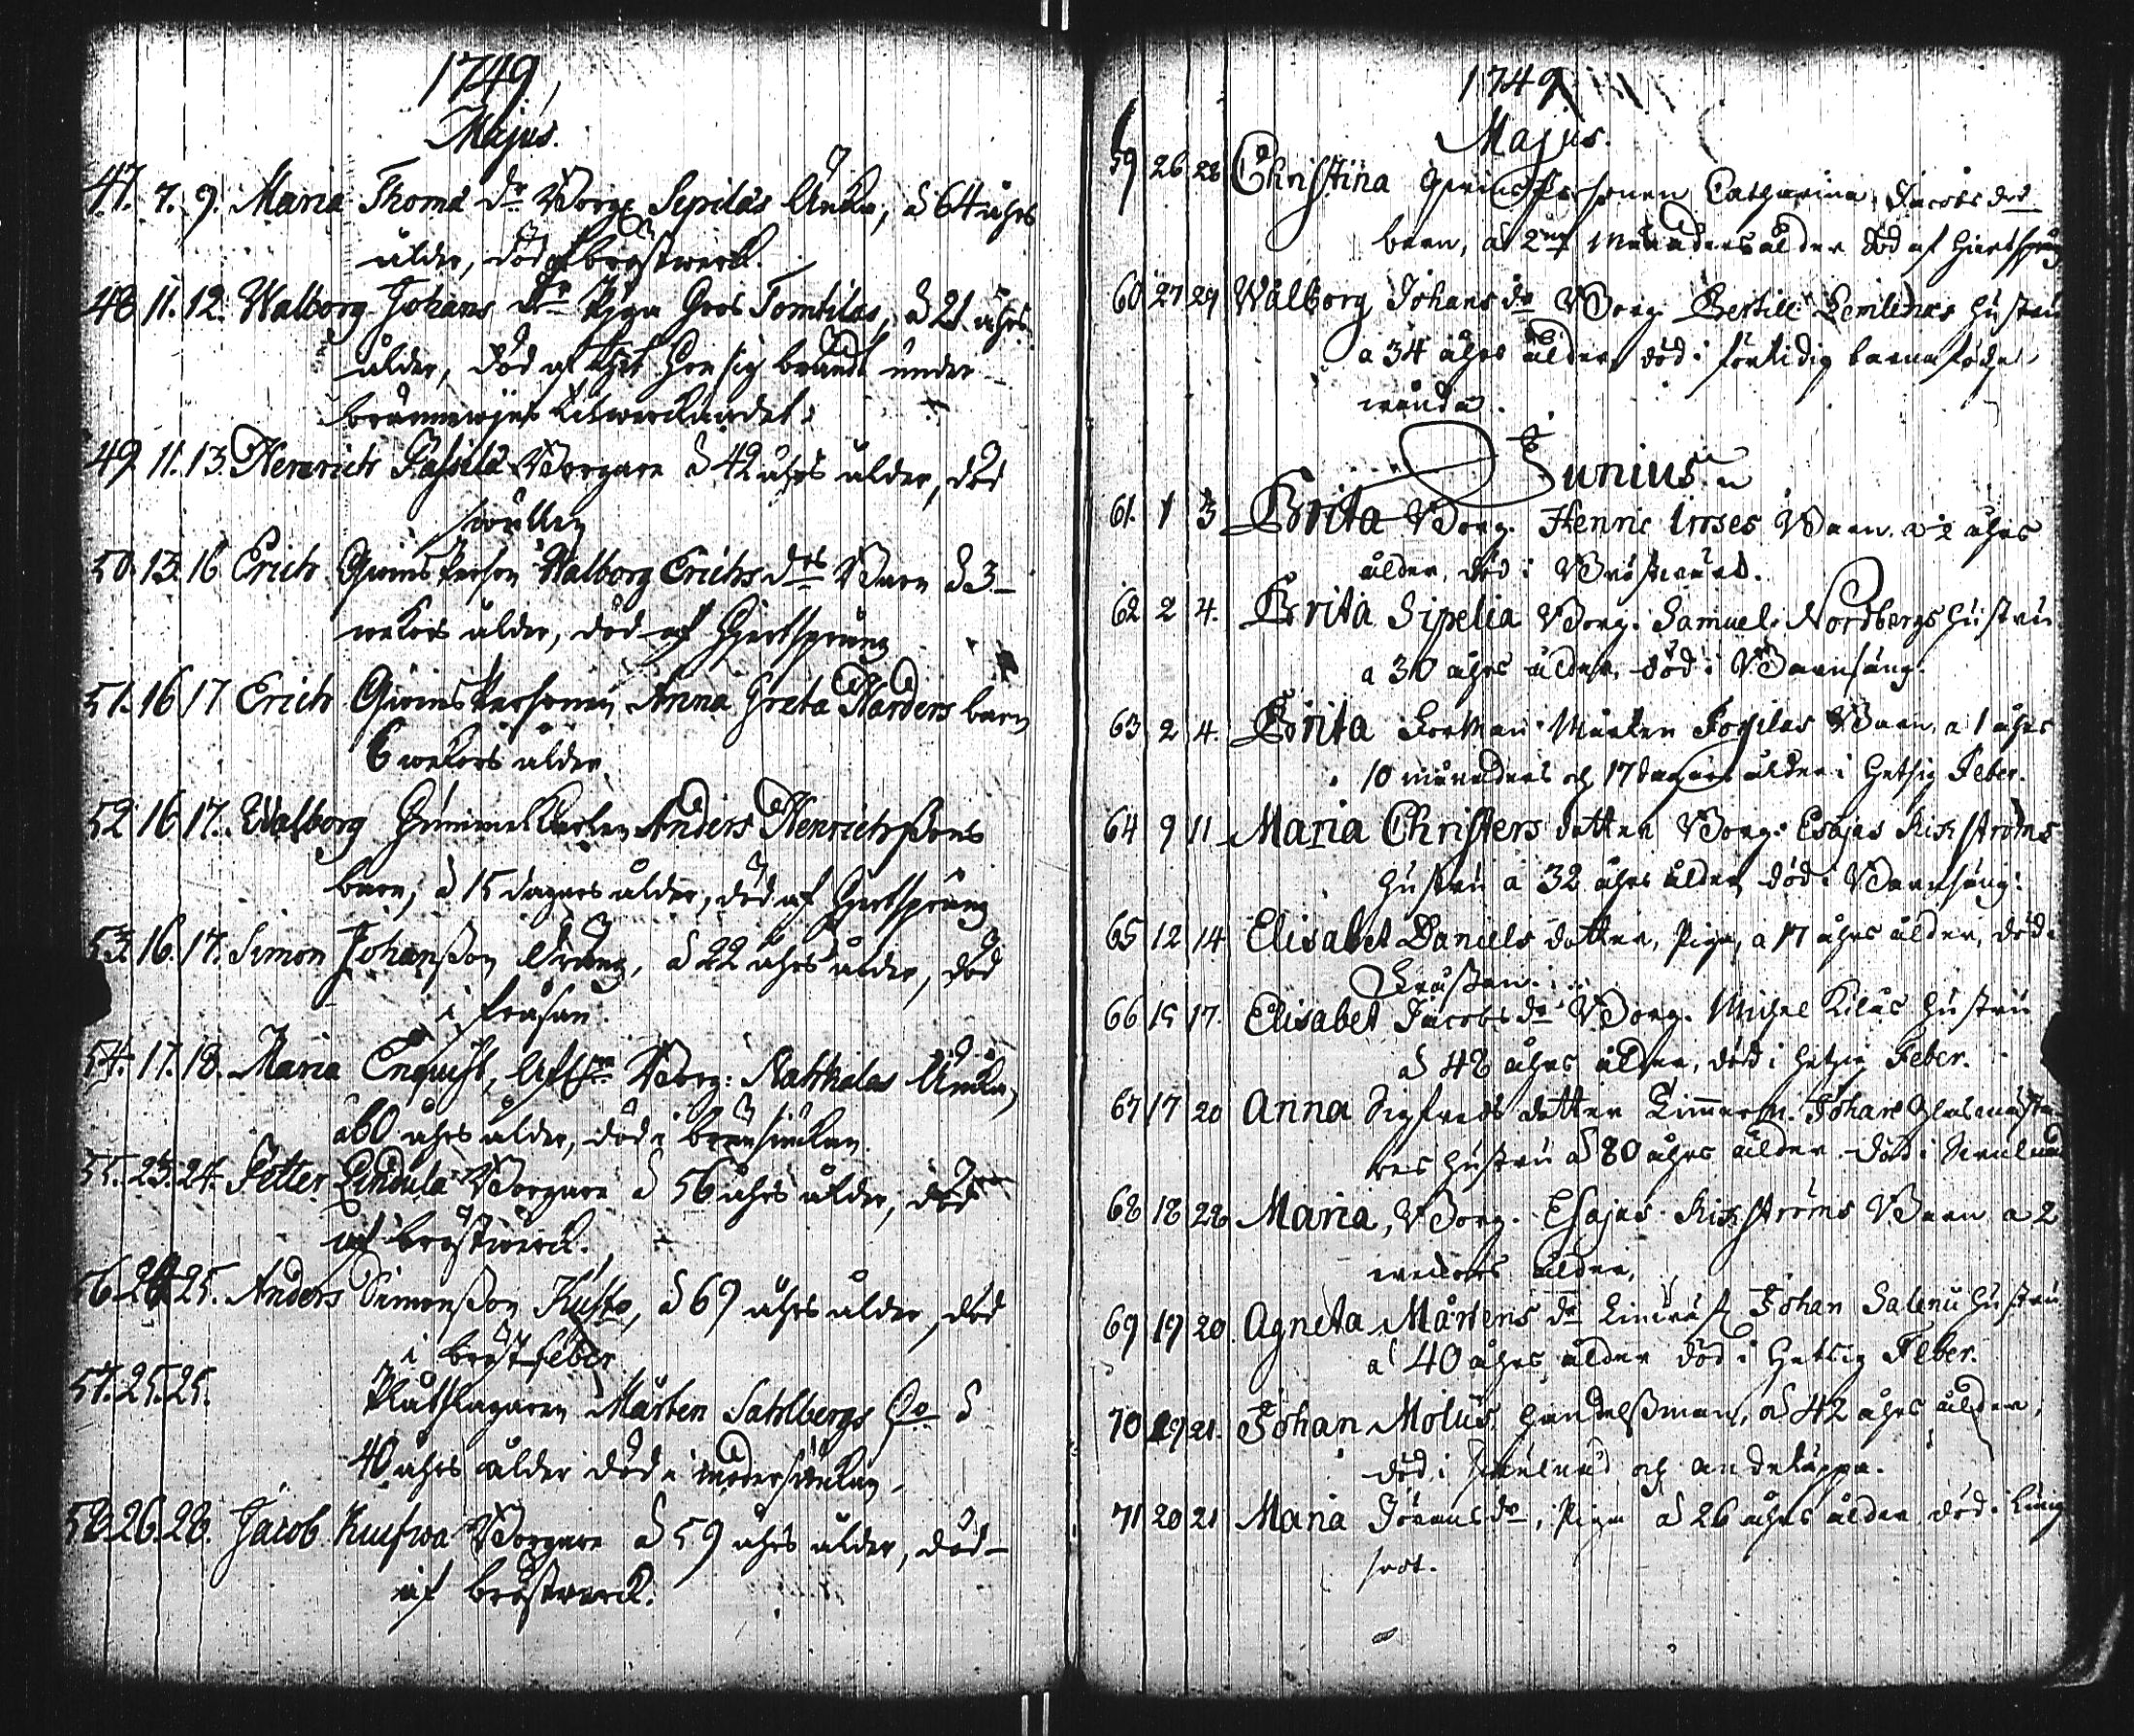 1749
Majus.
47. 7. 9. Maria Thomæ dr Borg: Sepiläs Änkia, å 64 åhrs
ålder, död af bröstwerck.
48 11. 12. Walborg Johans dr Piga hos Tomtilas, å 21 åhrs
ålder, död af thet hon sig brändt under
49 11. 13. Henrich Borgare å 42 åhrs ålder, död
50. 13. 16 Erich Qwins Person Walborg Erichs drs Barn å 3
wekors ålder, död af Hjertsprång
51. 16 17 Erich Qwins Personen Anna Greta Harders barn
6 wekors ålder
52 16 17. Walborg Anders Henrichssons
barn, å 15 dagars ålder, död af Hjertsprång
53. 16. 17. Simon Johansson Dräng, å 22 åhrs ålder, död
i fråsan.
54. 17. 18. Maria Enquist, Borg: Matthalas Änkia,
å 60 åhrs ålder, död i
55. 23. 24. Petter Lindula Borgare å 56 åhrs ålder, död
af bröstwerck.
56 24 25. Anders Simonsson Kusto, å 69 åhrs ålder, död
i bröstfeber
57. 25. 25. Plåtslagaren Mårten Sahlbergs å
40 åhrs ålder död i modersiukan
58. 26. 28. Jacob Borgare å 59 åhrs ålder, död
af bröstwerck.
1749
Majus.
59 26 28 Christina Qwins Personen Catharina Jacobs drs
barn, å 2 Månaders ålder död af Hiertsprång
60 27 29 Walborg Johans dr Borg. Bertill hustru
a 34 åhrs ålder, död i förtidig barna föds
wånda.
Junius.
61. 1 3 Brita Borg. Henric Irrses Barn. a 2 åhrs
ålder, död i Bröstwärck.
62 2 4. Brita Sipelia Borg. Samuel Nordbergs hustru
a 30 åhrs ålder, död i Barnsäng.
63 2 4. Brita Mårten Barn, a 1 åhrs
10 månaders och 17 dagars ålder i hetsig Feber.
64 9 11 Maria Christers dotter Borg. Esajas Kickströms
hustru a 32 åhrs ålder död i Barnsäng.
65 12 14 Elisabet Daniels dotter, Piga, a 17 åhrs ålder, död i
Frossan.
66 15 17. Elisabet Jacobs dr Borg. Michel Kilas hustru
å 48 åhrs ålder, död i hetsig Feber.
67 17 20 Anna Sigfreds dotter Timmerm. Johan Glasmästa
res hustru å 80 åhrs ålder död i
68 18 28 Maria, Borg. Esajas Kickströms Barn a 2
weckors ålder,
69 19 20. Agneta Mårtens dr Johan hustru
a 40 åhrs ålder död i Hetsig Feber.
70 19 21. Johan Molus, Handelsman, å 42 åhrs ålder,
död i och andetäppa.
71 20 21 Maria Jörans dr, Piga å 26 åhrs ålder död i Lung
soot.